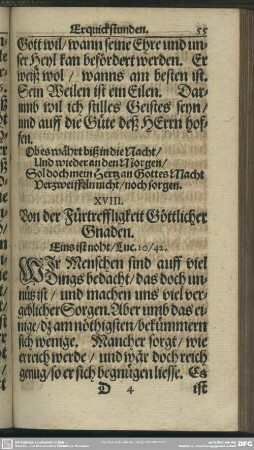 Erquickstunden. 55
Gott wil / wann seine Ehre und un-
ser Heyl kan befördert werden. Er
weiß wol / wanns am besten ist.
Sein Weilen ist ein Eilen. Dar-
umb wil ich stilles Geistes seyn /
und auff die Güte deß HErrn hof-
fen.
Ob es währt biß in die Nacht /
Und wieder an den Morgen /
Sol doch mein Hertz an Gottes Macht
Verzweiffeln nicht / noch sorgen.
XVIII.
Von der Fürtreffligkeit Göttlicher
Gnaden.
Eins ist noht / Luc. 10/42.
WJr Menschen sind auff viel
Dings bedacht / das doch un-
nütz ist / und machen uns viel ver-
geblicher Sorgen. Aber umb das ei-
nige / dz am nöthigsten / bekümmern
sich wenige. Mancher sorgt / wie
er reich werde / und wär doch reich
genug / so er sich begnügen liesse. Es
D 4 ist